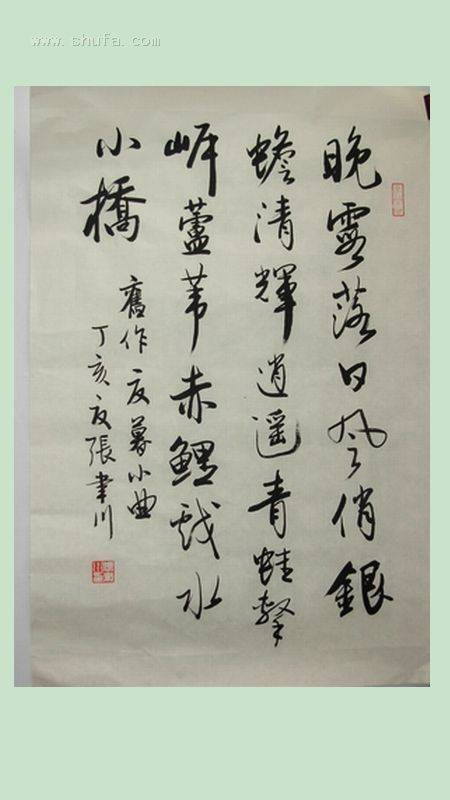 www.shufa.com
晚霞落日風俏銀
蟾清輝逍遥青蛙聲
岸蘆苇赤鯉戏水
小橋
舊作夏暮小曲
丁亥夏張聿川